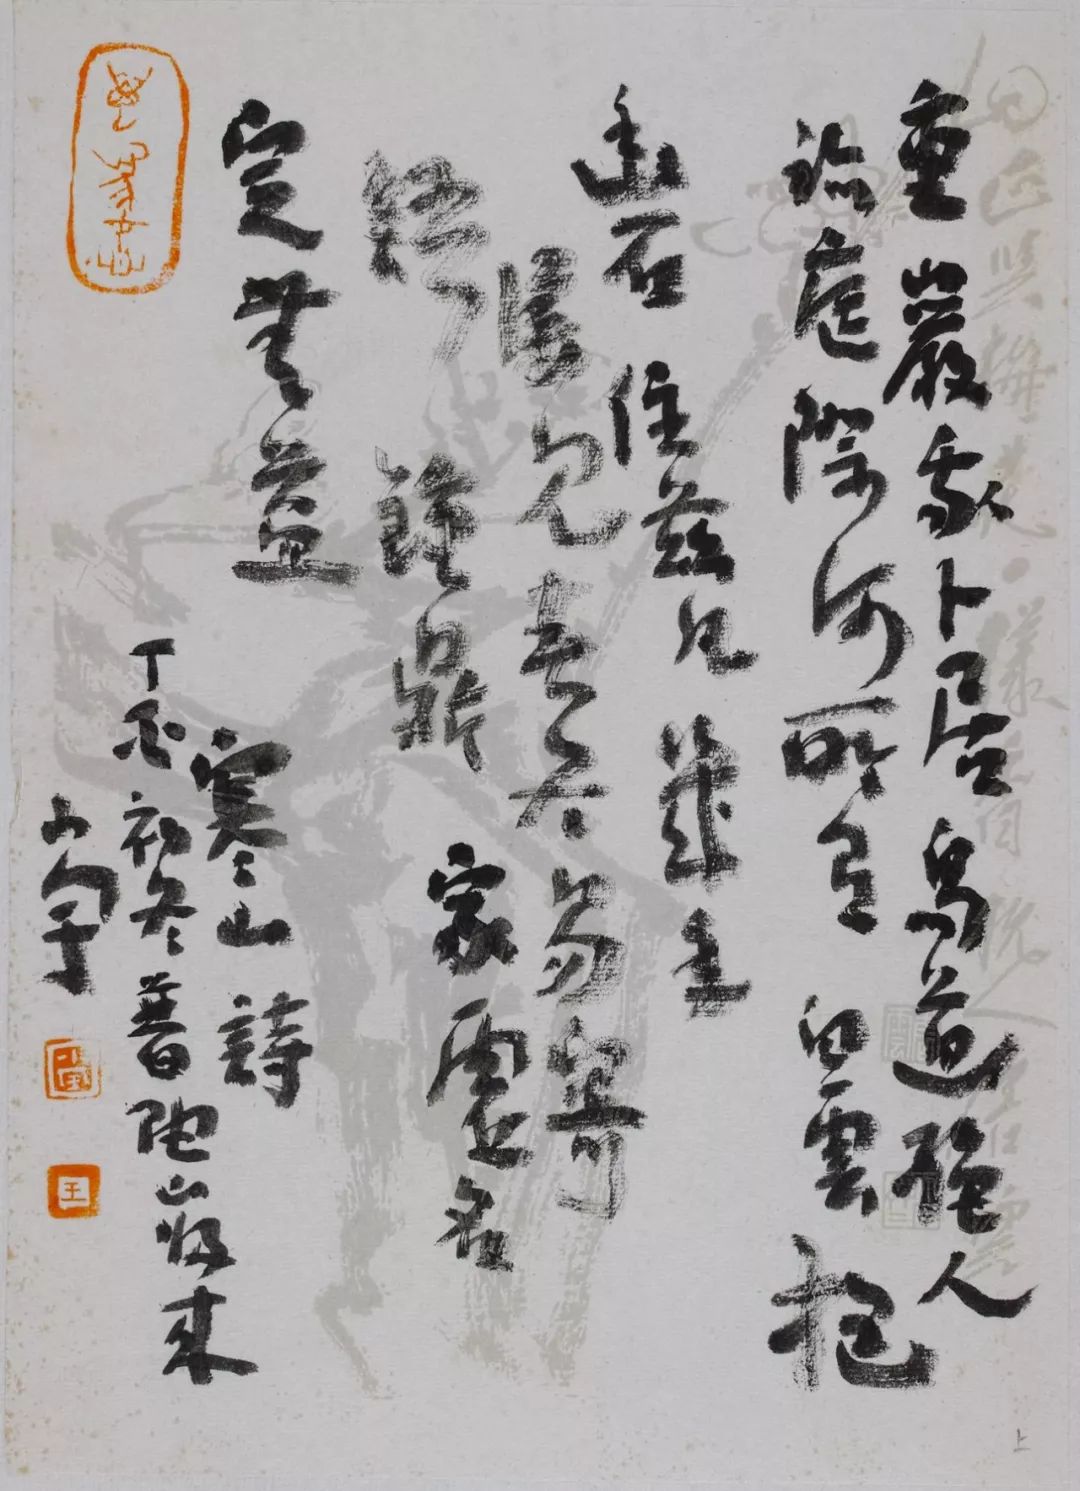 重巖我卜居鳥道絕人
跡庭際何所有白雲抱
幽石住茲凡幾年
屢見春冬易寄
語鐘鼎家虛名
定無益
寒山詩
丁 初冬普陀山歸來
王
上